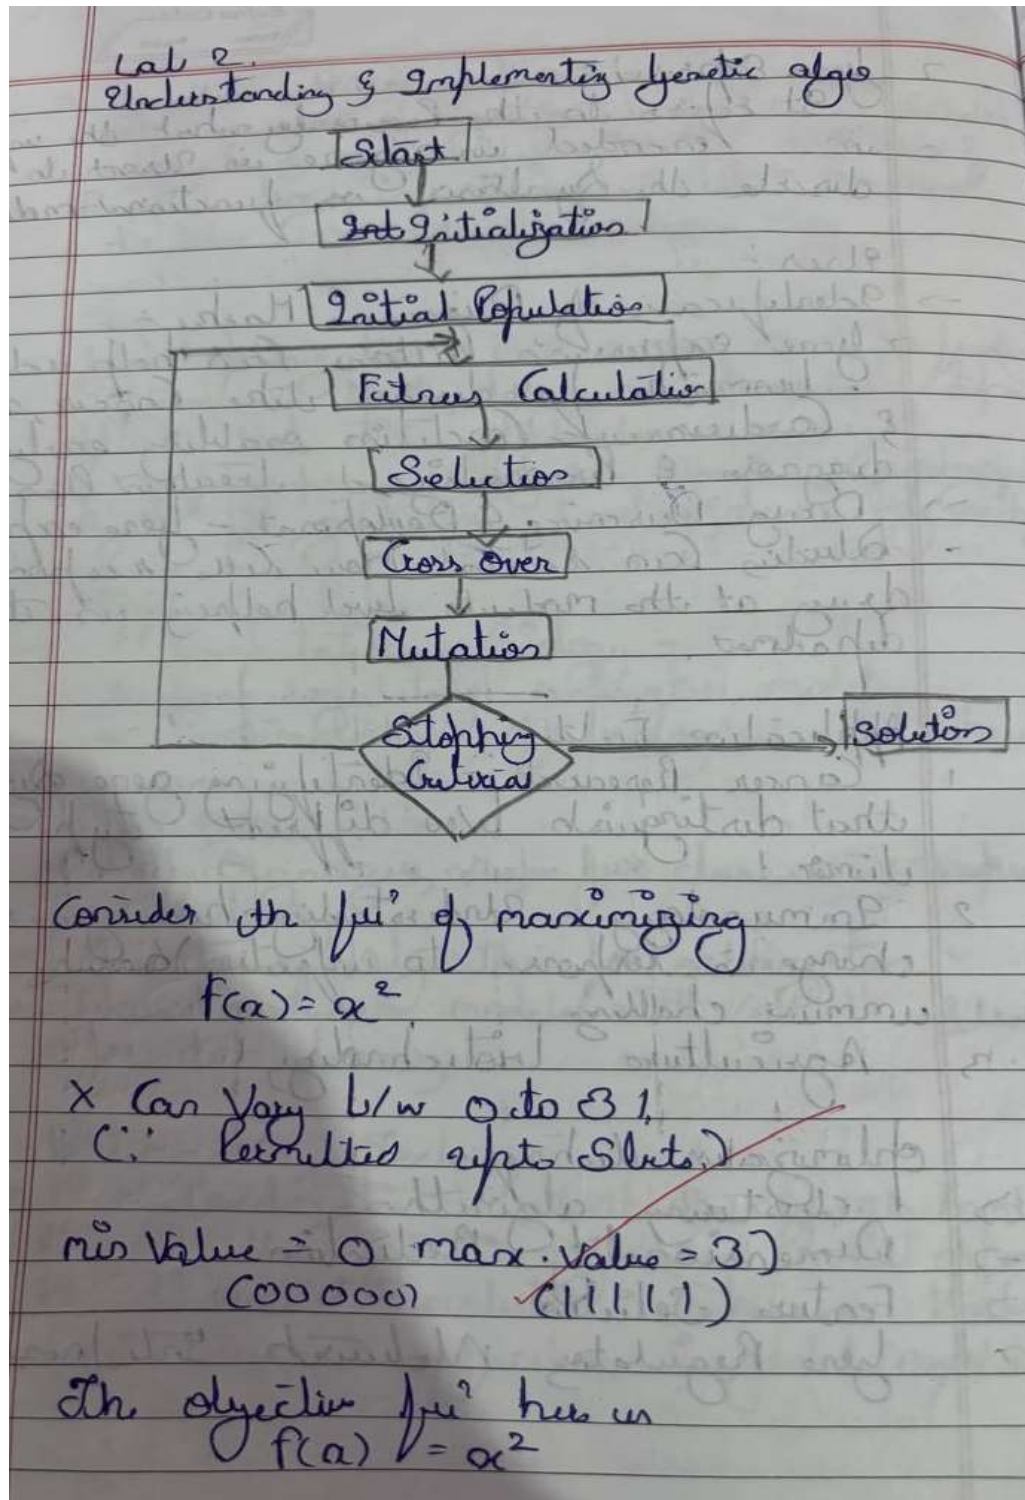 Lab 2.
Understanding & Implementing Genetic algo
Start
Initialization
Initial Population
Fitness Calculation
Selection
Cross Over
Mutation
Stopping
Criteria
Solution
Consider th fun of maximizing
f(x) = x²
X Can Vary b/w 0 to 31,
(∵ Permitted upto 5 bits.)
min Value = 0 max. value = 31
(00000) (11111)
The objective fun here is
f(x) = x²